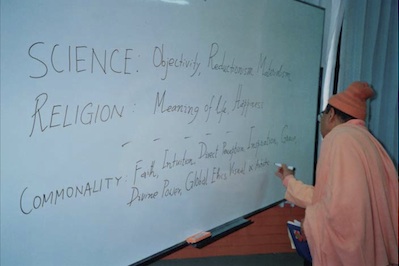 SCIENCE: Objectivity, Reductionism, Materialism
RELIGION: Meaning of life, Happiness
COMMONALITY: Faith, Intuition, Direct Perception, Inspiration, Grace
Divine Power, Global Ethics